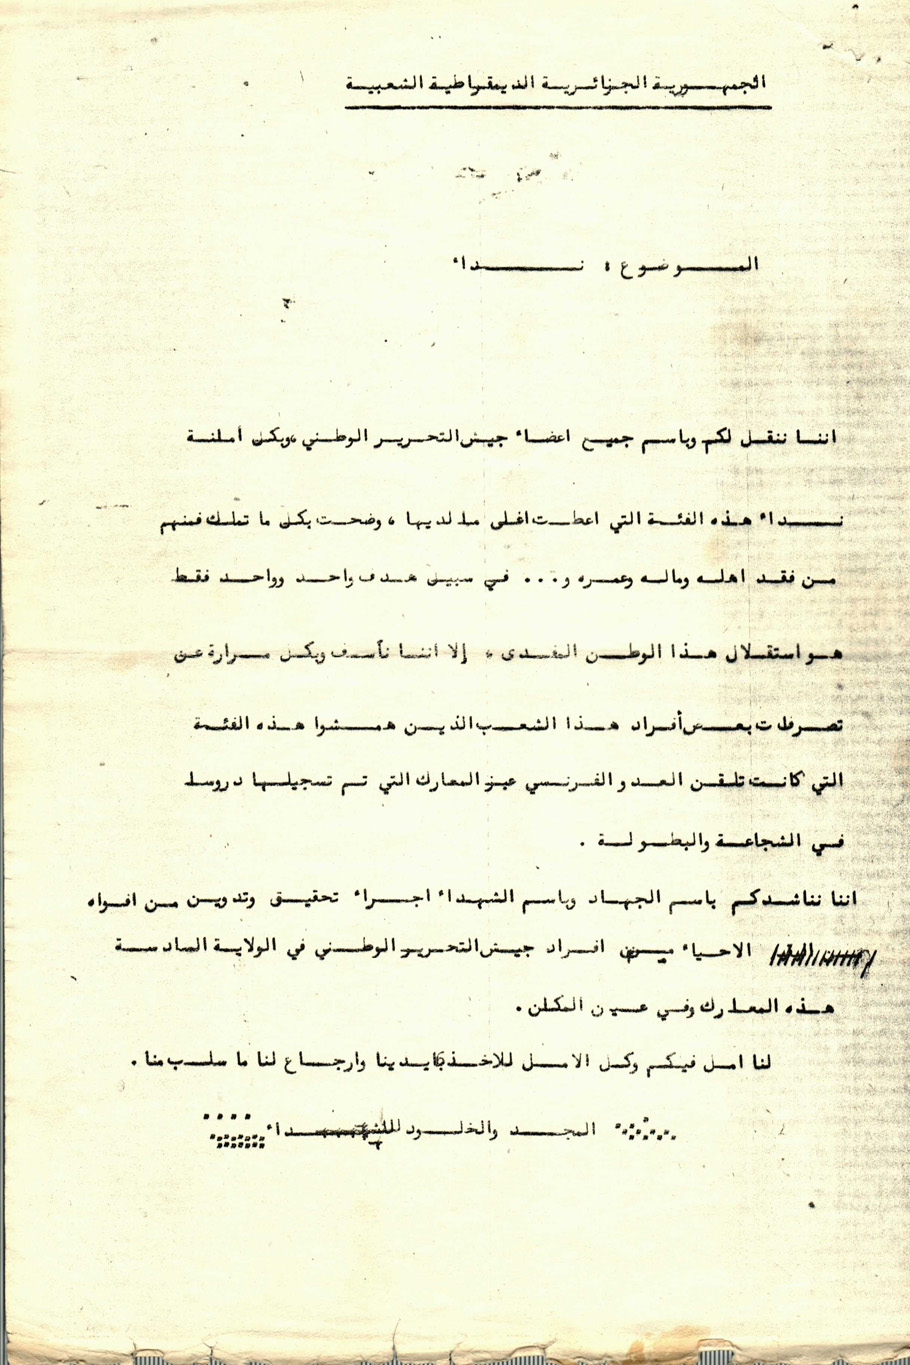 الجمهورية الجزائرية الديمقراطية الشعبية
الموضوع : نداء
اننا ننقل لكم وباسم جميع اعضاء جيش التحرير الوطني ،وبكل أملنة
نداء هذه الفئة التي اعطت اغلى ما لديها ، وضحت بكل ما تملك فمنهم
من فقد اهله وماله وعمره و... في سبيل هدف واحد وواحد فقط
هو استقلال هذا الوطن المفدى ، إلا اننا نأسف وبكل مرارة عن
تصرفات بعض أفراد هذا الشعب الذين همشوا هذه الفئة
التي كانت تلقن العدو الفرنسي عبر المعارك التي تم تسجيلها دروسا
في الشجاعة والبطولة .
اننا نناشدكم باسم الجهاد وباسم الشهداء اجراء تحقيق وتدوين من افواه
الاحياء من افراد جيش التحرير الوطني في الولاية السادسة
هذه المعارك وفي عين المكان .
لنا امل فيكم وكل الامل للاخذ بايدينا وارجاع لنا ما سلب منا .
المجد والخلود للشهداء